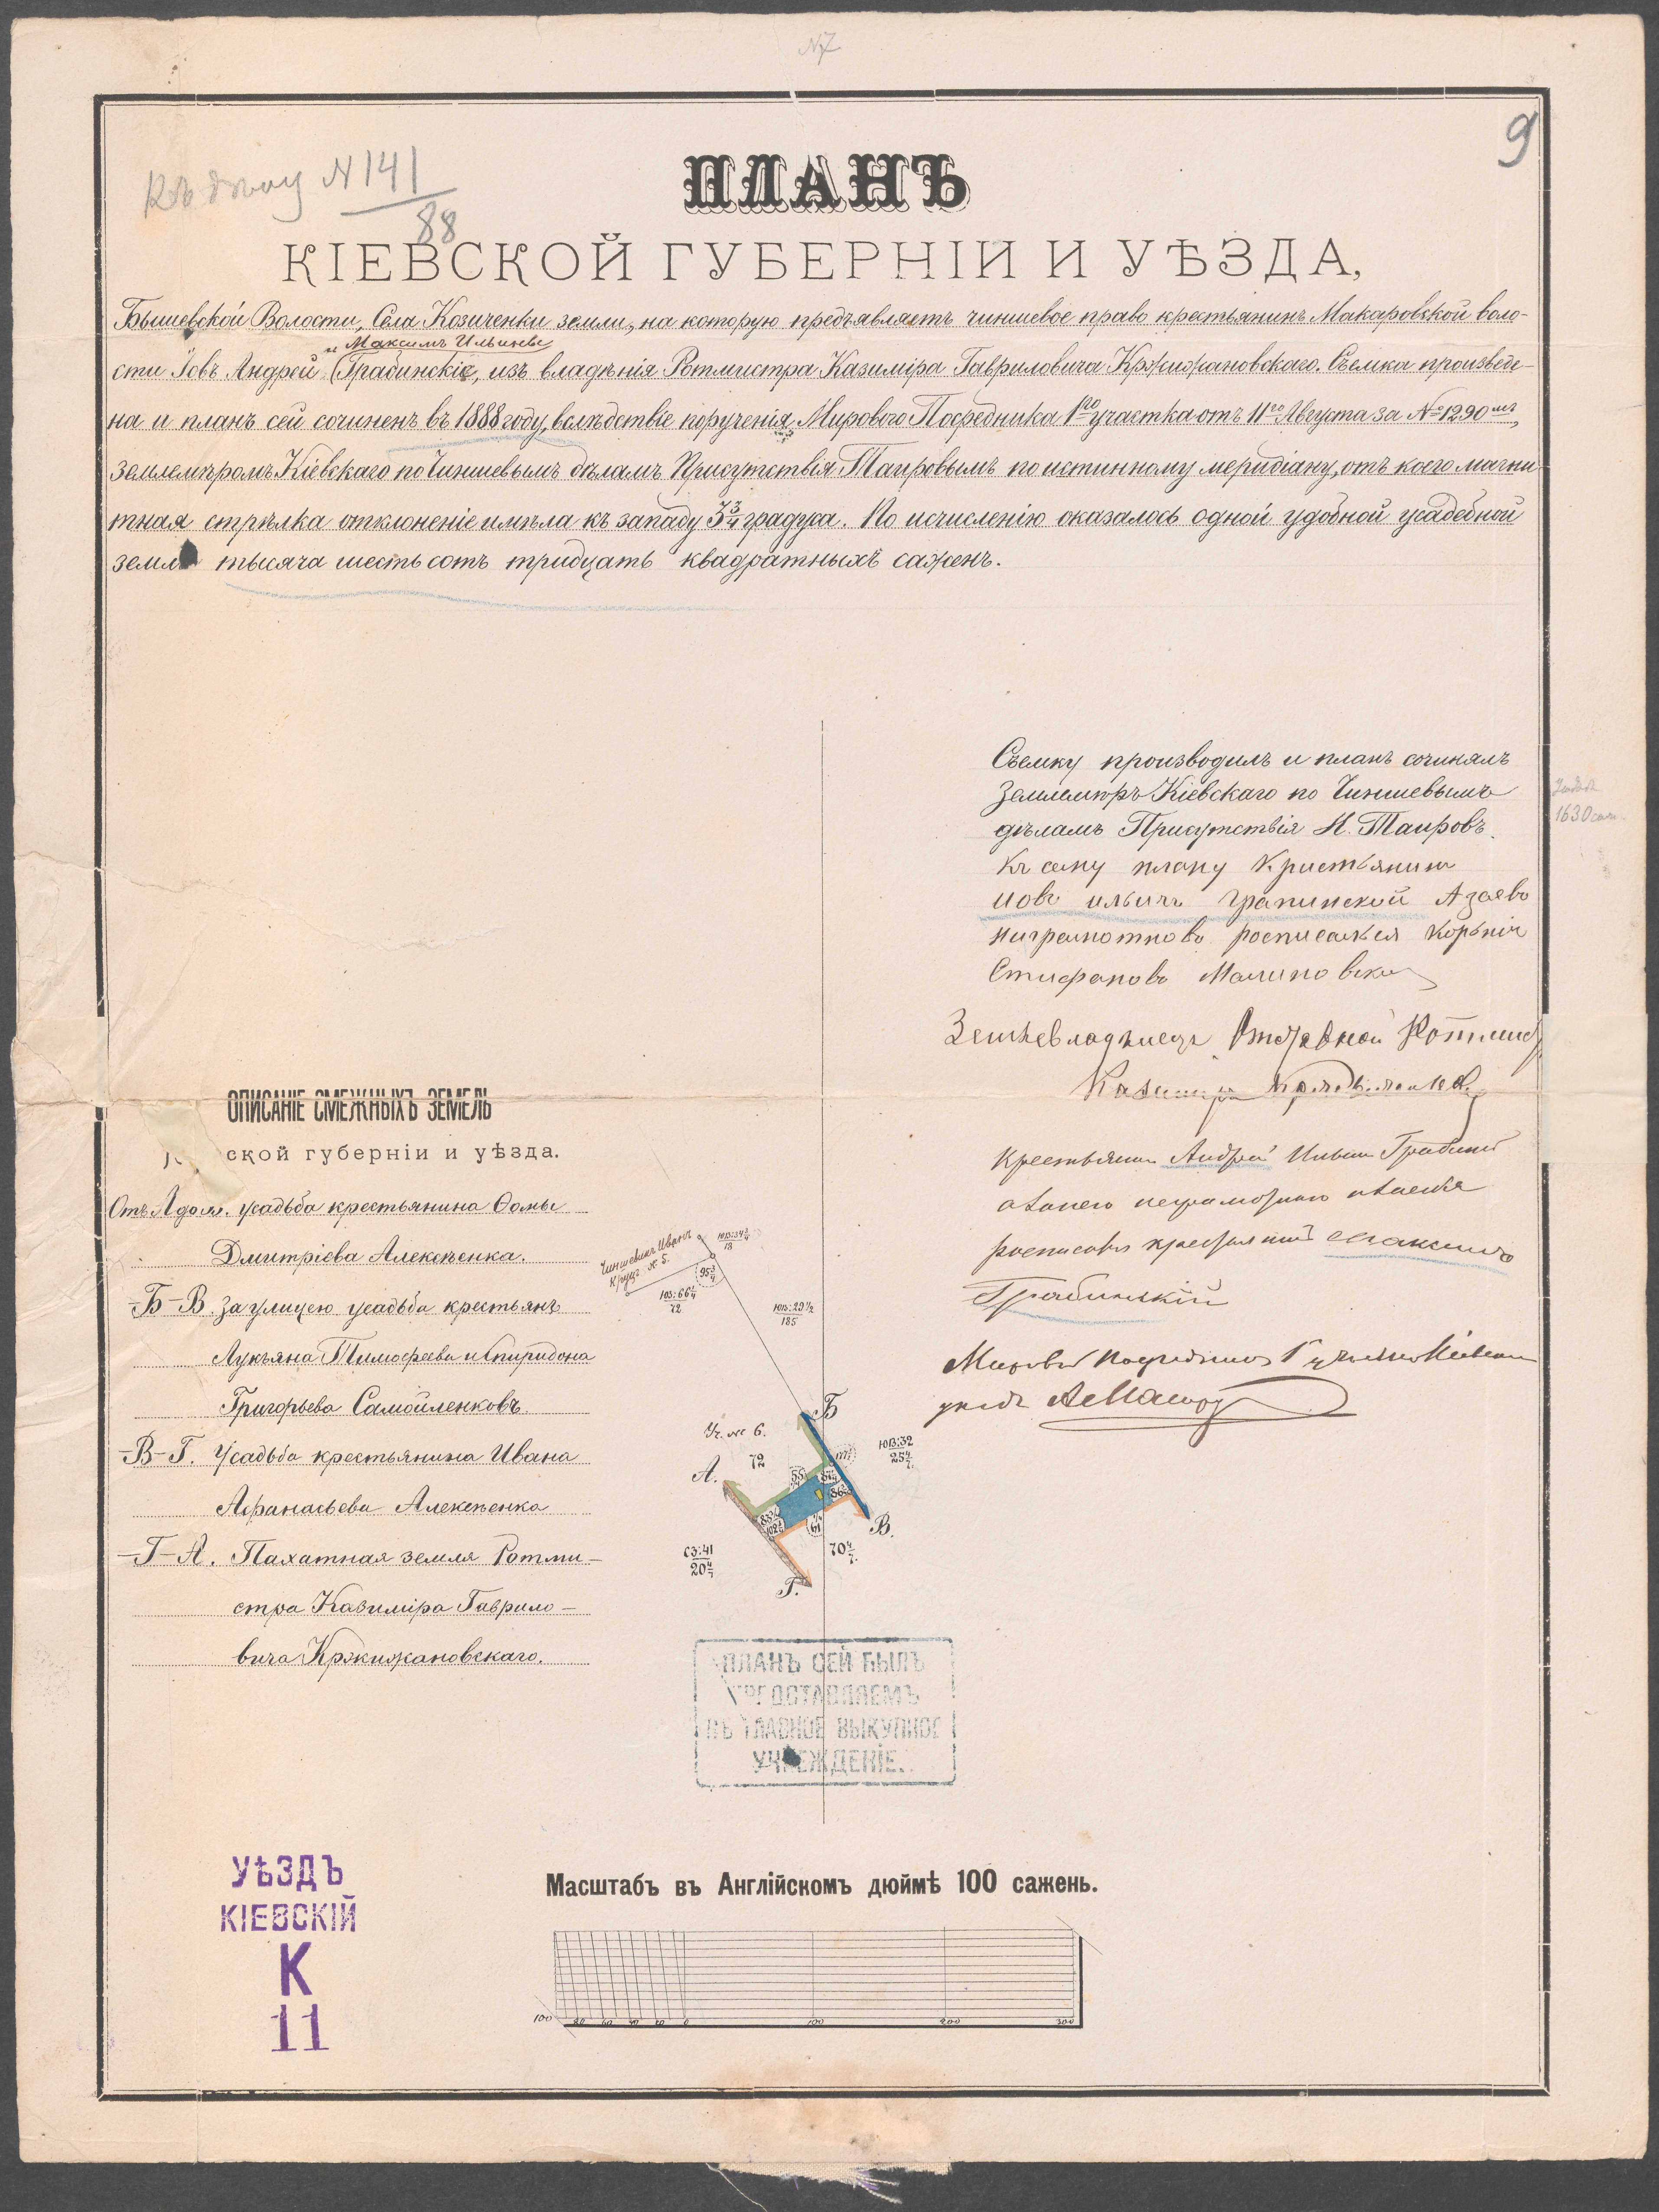 №7
9
Къ дѣлу № 141
88
ПЛАНЪ
КІЕВСКОЙ ГУБЕРНІИ И УѢЗДА,
Бышевской Волости, Села Козиченки земли, на которую предъявляетъ чиншевое право крестьянинъ Макаровской воло-
и Максимъ Ильины
сти Іовъ Андрей Грабинскіе, изъ владѣнія Ротмистра Казиміра Гавриловича Кржижановскаго. Съемка произведе-
на и планъ сей сочиненъ въ 1888 году, вслѣдствіе порученія Мирового Посредника 1го участка отъ 11го Августа за № 1290мъ,
землемѣромъ Кіевскаго по Чиншевымъ дѣламъ Присутствія Таировымъ по истинному меридіану, отъ коего магни-
тная стрѣлка отклоненіе имѣла къ западу 3 3/4 градуса. По исчисленію оказалось одной удобной усадебной
земли тысяча шестьсотъ тридцать квадратныхъ саженъ.
Съемку производилъ и планъ сочинялъ
Землемѣръ Кіевскаго по Чиншевымъ
дѣламъ Присутствія Н. Таировъ.
1630 саж.
Къ сему плану Кристьянин
Иовъ ильичъ грапинской Азаево
ниграмотнова росписался Корьній
Стифановъ Малиновски
Землевладѣлецъ Отставной Ротмист
Казиміръ
Крестьянин Андрей Ильин Грабинс
росписовъ крестьянинъ Максимъ
Грабинский
Мировой Посредникъ 1 участка Кіевск
уезда
ОПИСАНІЕ СМЕЖНЫХЪ ЗЕМЕЛЬ
ской губерніи и уѣзда.
Отъ А до Б. усадьба крестьянина Ѳомы
Дмитріева Алексѣенка.
-Б-В. За улицею усадьба крестьянъ
Лукьяна Тимофеева и Спиридона
Григорьева Самойленковъ
-В-Г. Усадьба крестьянина Ивана
Афанасьева Алексѣенка
-Г-А. Пахатная земля Ротми-
стра Казиміра Гаврило-
вича Кржижановскаго.
Чиншевика Ивана
Круцъ № 5.
18
95 3/4
ЮЗ:66 1/4
72
ЮВ:29 1/2
185
Б
Уч. № 6.
72
А.
ЮВ:32
25 4/7
55
В.
СЗ:41
20 4/7
70 4/7
Г.
ПЛАНЪ СЕЙ БЫЛЪ
ПРЕДСТАВЛЯЕМЪ
ВЪ ГЛАВНОЕ ВЫКУПНОЕ
УЧРЕЖДЕНІЕ.
УѢЗДЪ
КІЕВСКІЙ
К
11
Масштабъ въ Англійскомъ дюймѣ 100 саженъ.
100 80 60 40 20 0 100 200 300